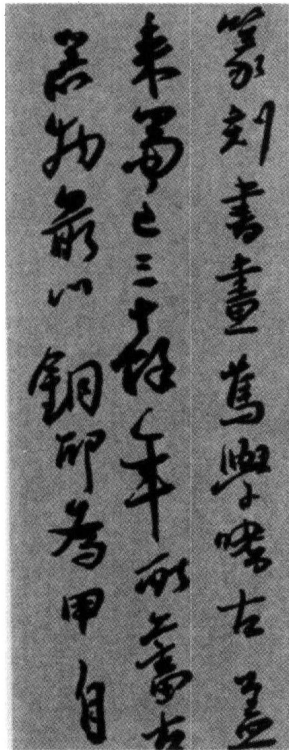 篆刻書畫篤學嗜古
来已三十餘年所蓄古
器物最以銅印為甲自